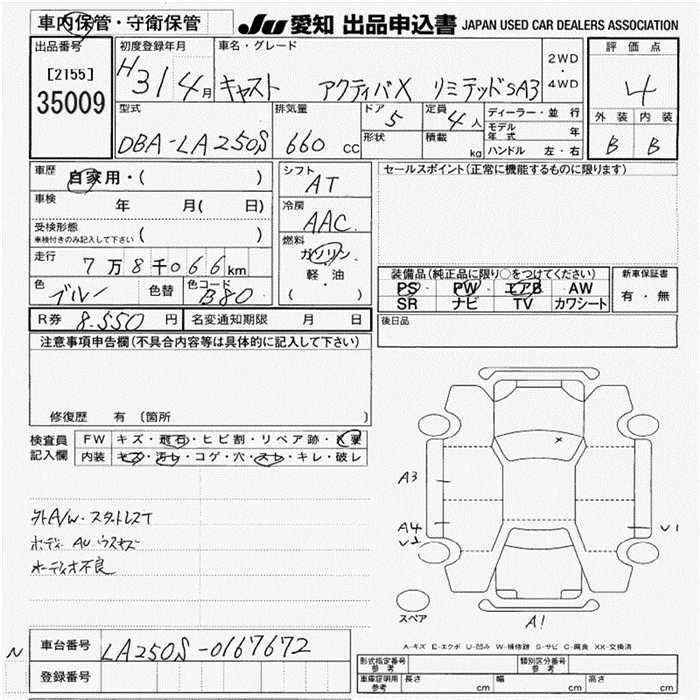 車内保管・守衛保管
JU 愛知 出品申込書 JAPAN USED CAR DEALERS ASSOCIATION
出品番号 [2155] 35009
初度登録年月 H31 4月
車名・グレード キャスト アクティバX リミテッドSA3
2WD・4WD
評価点 4
外装 B 内装 B
型式 DBA-LA250S
排気量 660cc
ドア 5
形状
定員 4人
積載 kg
ディーラー・並行
モデル年式 年
ハンドル 左・右
車歴 自家用・( )
車検 年 月( 日)
受検形態 車検付きのみ記入して下さい ( )
走行 7万8千066km
色 ブルー 色替 色コード B80
シフト AT
冷房 AAC
燃料 ガソリン・軽油 ( )
セールスポイント(正常に機能するものに限ります)
装備品(純正品に限り○をつけてください)
PS PW エアB AW
SR ナビ TV カワシート
新車保証書 有・無
R券 8,550円 名変通知期限 月 日
後日品
注意事項申告欄(不具合内容等は具体的に記入して下さい)
修復歴 有 (箇所
検査員記入欄
FW キズ・飛石・ヒビ割・リペア跡・X要
内装 キズ・汚レ・コゲ・穴・スレ・キレ・破レ
外A/W・スタットレスT
ボディ AU ウスキズ
オーディオ不良
A3
A4
U2
U1
A1
スペア
A-キズ E-エクボ U-凹み W-補修跡 S-サビ C-腐食 XX-交換済
N 車台番号 LA250S-0167672
登録番号
形式指定番号 参考
類別区分番号 参考
車庫証明用 参考 長さ cm 幅 cm 高さ cm